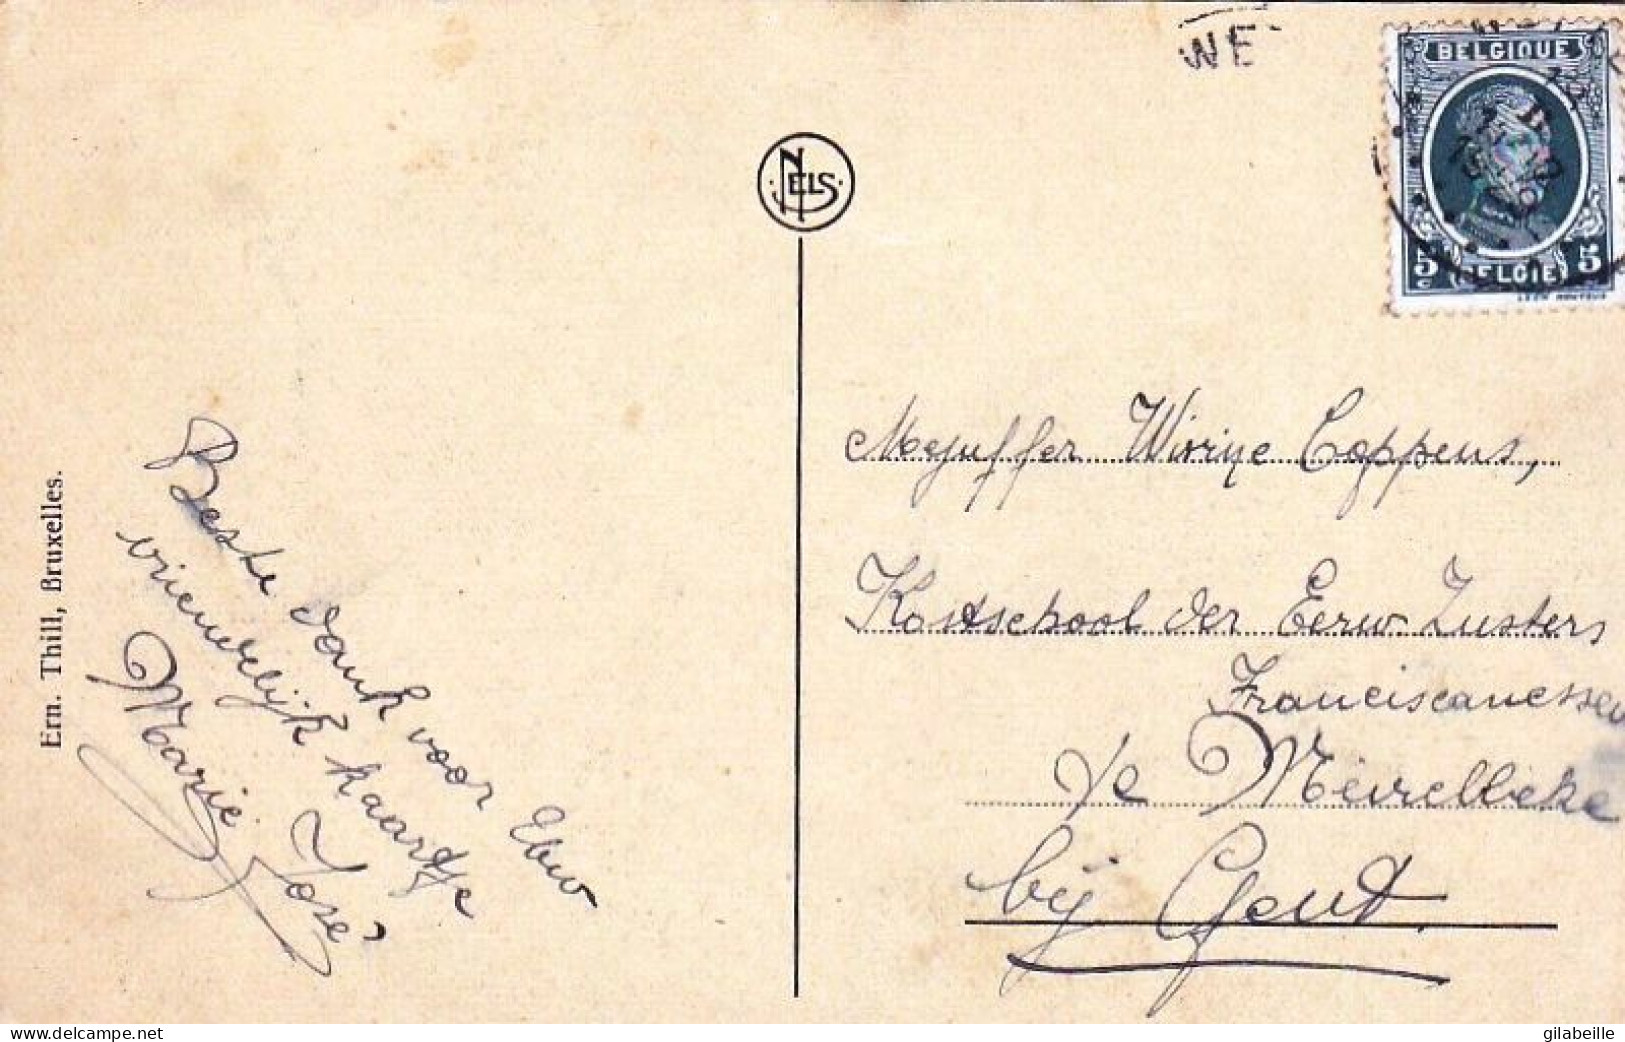 WE
BELGIQUE
5 BELGIE 5
NELS
Ern. Thill, Bruxelles.
Beste dank voor Uw
vriendelijk kaartje
Marie José
Mejuffer Wivine Coppens,
Kostschool der Eerw Zusters
Franciscanessen
te Meirelbeke
bij Gent.
delcampe.net
gilabeille